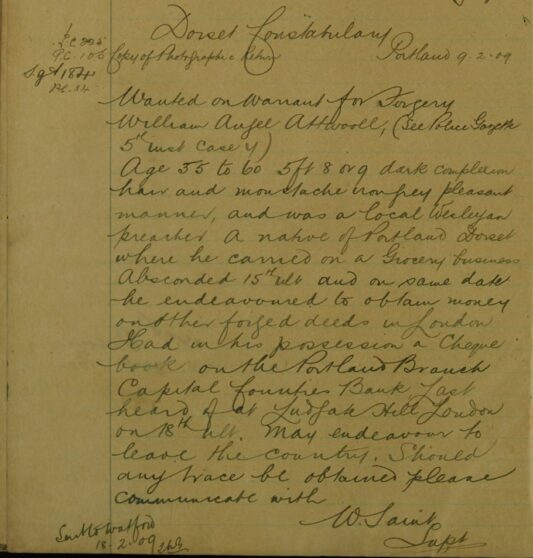 Dorset Constabulary
P.C. 106
Copy of Photographic
Portland 9-2-09
Sgt 184
Wanted on Warrant for Forgery
William Angel Attwooll, (See Police Gazette
5th inst Case 4)
Age 55 to 60 5ft 8 or 9 dark complexion
hair and moustache iron grey pleasant
manner, and was a local Wesleyan
preacher A native of Portland Dorset
where he carried on a Grocery business
Absconded 15th ult and on same date
he endeavoured to obtain money
on other forged deeds in London
Had in his possession a Cheque
book on the Portland Branch
Capital Counties Bank Last
heard of at Ludgate Hill London
on 18th ult. May endeavour to
leave the country. Should
any trace be obtained please
communicate with
W. Saint
Supt
Sent to Watford
18-2-09